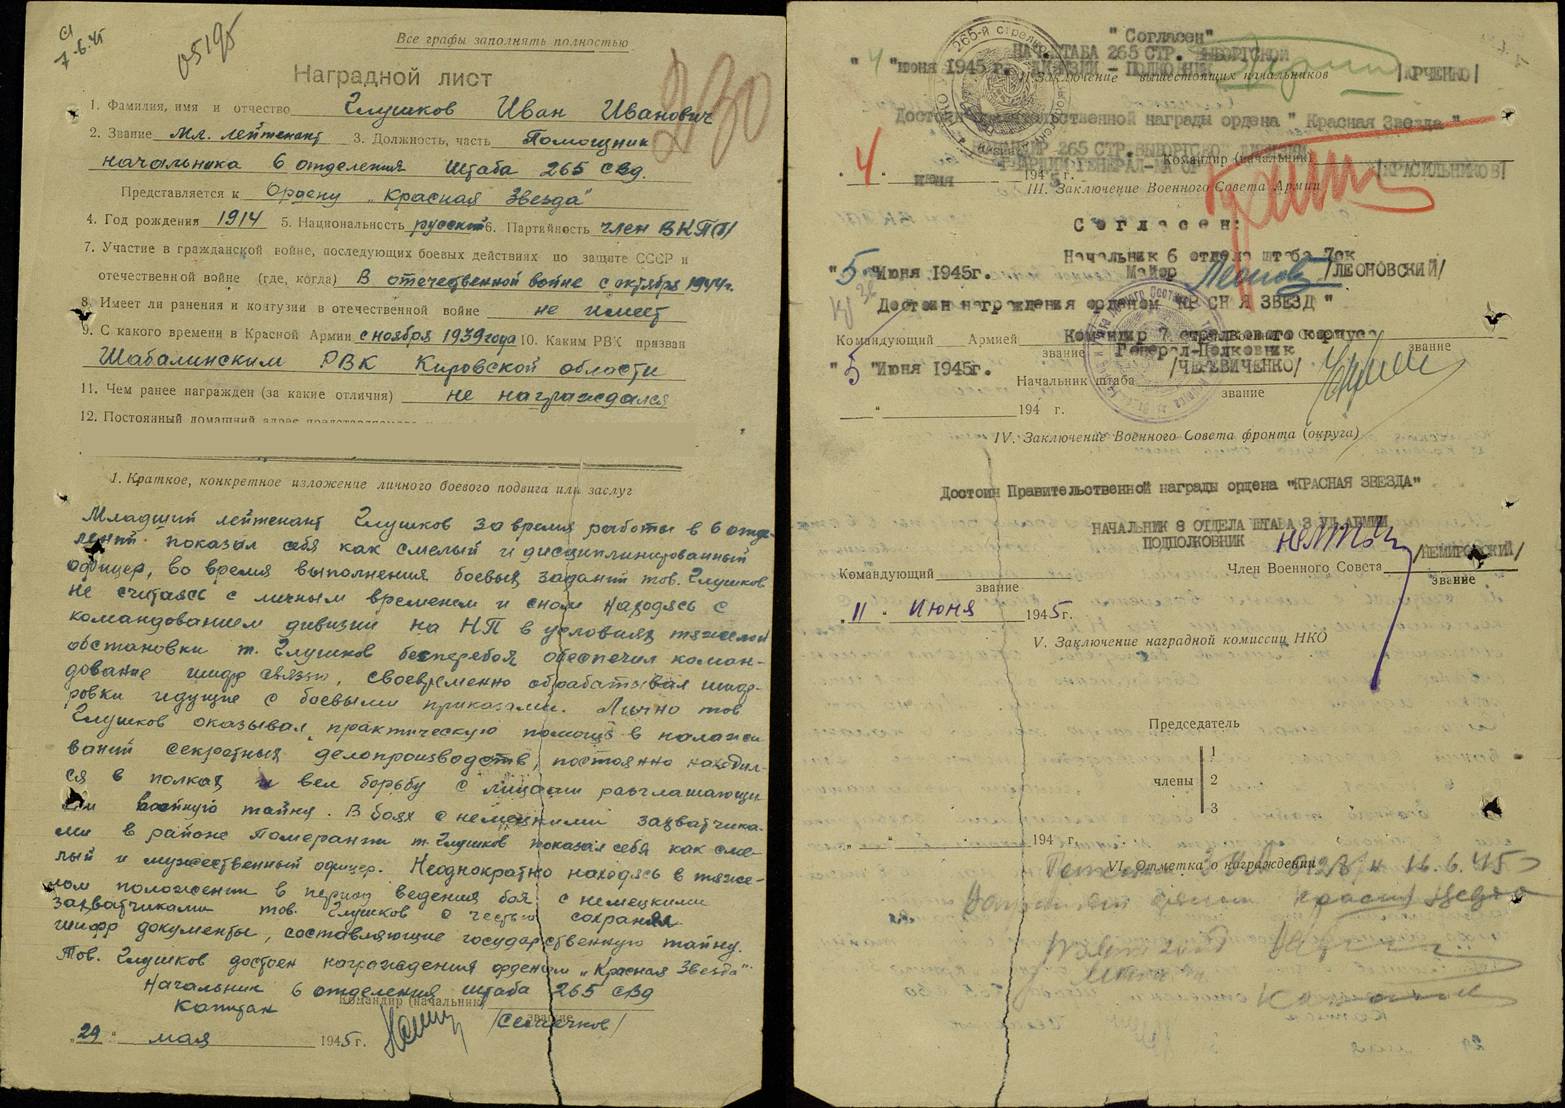 7.6.45
05195
Все графы заполнять полностью
230
Наградной лист
1. Фамилия, имя и отчество Глушков Иван Иванович
2. Звание Мл. лейтенант 3. Должность, часть Помощник
начальника 6 отделения штаба 265 СВД.
Представляется к Ордену „Красная Звезда"
4. Год рождения 1914 5. Национальность русский 6. Партийность член ВКП(б)
7. Участие в гражданской войне, последующих боевых действиях по защите СССР и
отечественной войне (где, когда) В отечественной войне с октября 1944г.
8. Имеет ли ранения и контузии в отечественной войне не имеет
9. С какого времени в Красной Армии с ноября 1939 года 10. Каким РВК призван
Шабалинским РВК Кировской области
11. Чем ранее награжден (за какие отличия) не награждался
12. Постоянный домашний адрес
1. Краткое, конкретное изложение личного боевого подвига или заслуг
Младший лейтенант Глушков за время работы в 6 отде-
лении показал себя как смелый и дисциплинированный
офицер, во время выполнения боевых заданий тов. Глушков
не считаясь с личным временем и сном находясь с
командованием дивизии на НП в условиях тяжелой
обстановки т. Глушков бесперебоя обеспечил коман-
дование шифр связью, своевременно обрабатывал шиф-
ровки идущие с боевыми приказами. Лично тов
Глушков оказывал практическую помощь в налажи
вании секретных делопроизводств, постоянно находил-
ся в полках и вел борьбу с лицами разглашающи
ми военную тайну. В боях с немецкими захватчика-
ми в районе Померании т. Глушков показал себя как сме-
лый и мужественный офицер. Неоднократно находясь в тяже-
лом положении в период ведения боя с немецкими
захватчиками тов. Глушков с честью сохранял
шифр документы, составляющие государственную тайну.
Тов. Глушков достоен награждения орденом „Красная Звезда"
Начальник 6 отделения штаба 265 СВД
Капитан
Командир (начальник)
звание
/Семячков/
„29" мая 1945г.
"Согласен"
НАЧ.ШТАБА 265 СТР. ВЫБОРГСКОЙ
"4" июня 1945 г. ДИВИЗИИ - ПОДПОЛКОВНИК /ЮРЧЕНКО/
II. Заключение вышестоящих начальников
Достоин правительственной награды ордена "Красная Звезда"
КОМАНДИР 265 СТР.ВЫБОРГСКОЙ ДИВИЗИИ
Командир (начальник)
ГВАРДИИ ГЕНЕРАЛ-МАЙОР /КРАСИЛЬНИКОВ/
„4" июня 1945 г.
III. Заключение Военного Совета Армии
Согласен:
Начальник 6 отдела штаба 7ск
"5" Июня 1945г. Майор /ЛЕОНОВСКИЙ/
Достоин награждения орденом "КРАСНАЯ ЗВЕЗДА"
Командующий Армией Командир 7 стрелкового корпуса
звание Генерал-Полковник звание
"5" Июня 1945г. /ЧЕРЕВИЧЕНКО/
Начальник штаба
звание
„ " 194 г.
IV. Заключение Военного Совета фронта (округа)
Достоин Правительственной награды ордена "КРАСНАЯ ЗВЕЗДА"
НАЧАЛЬНИК 8 ОТДЕЛА ШТАБА 3 УД.АРМИИ
ПОДПОЛКОВНИК /НЕМИРОВСКИЙ/
Командующий Член Военного Совета
звание звание
„11" Июня 1945г.
V. Заключение наградной комиссии НКО
Председатель
1
члены 2
3
„ " 194 г.
VI. Отметка о награждении
16.6.45